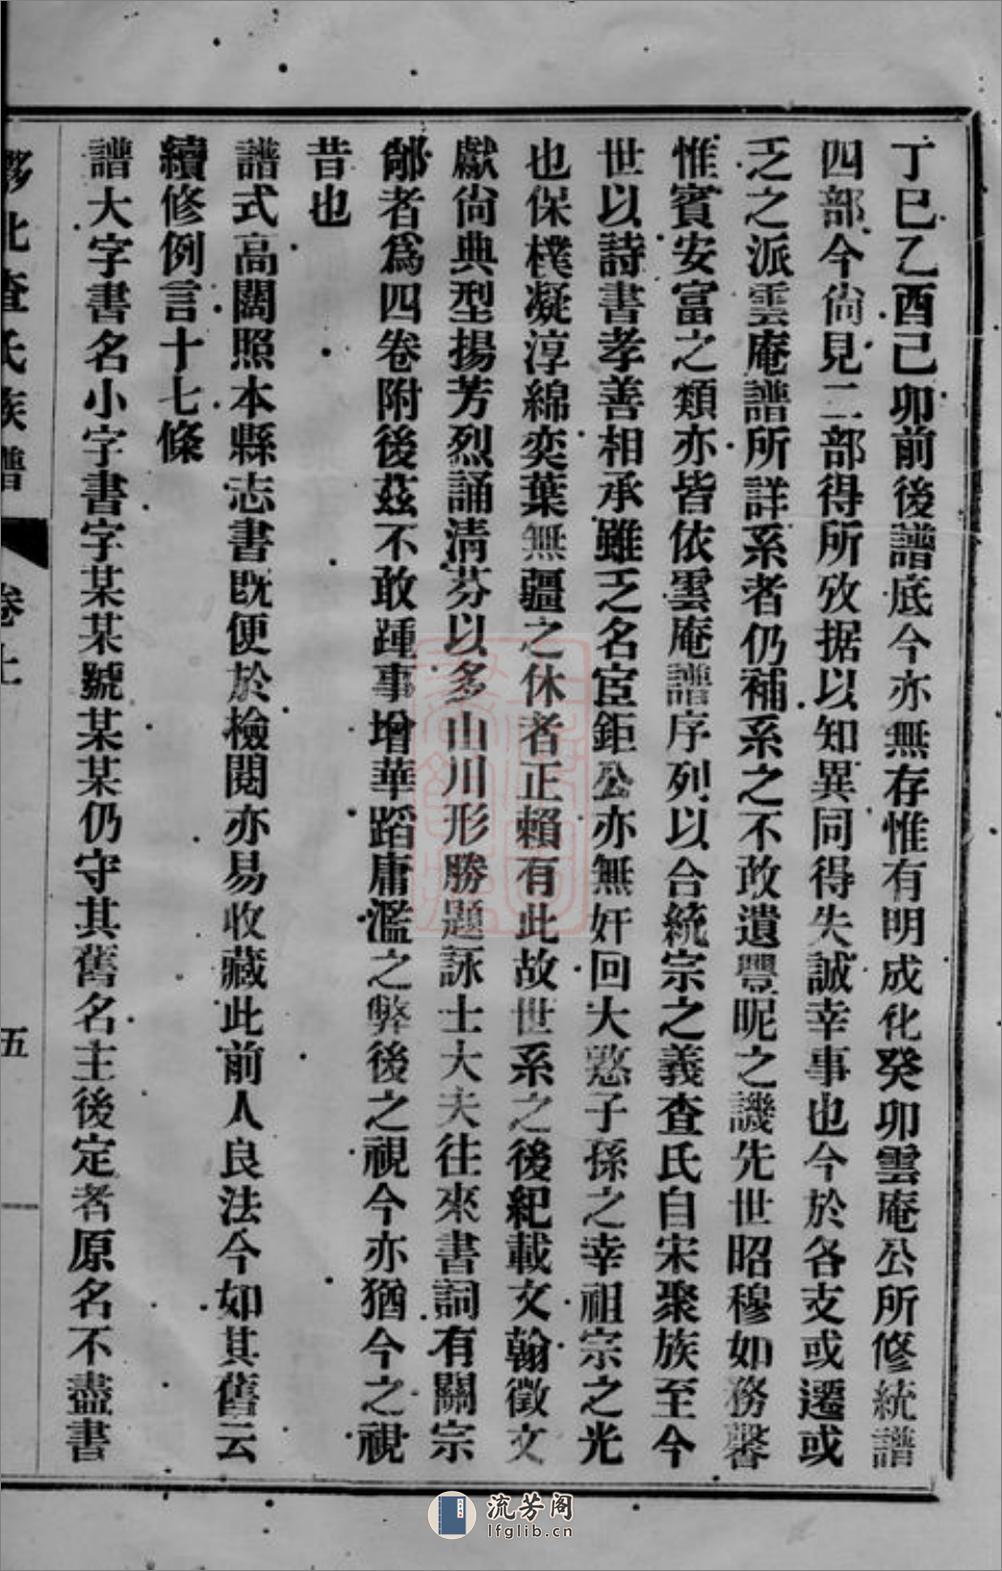 丁巳乙酉己卯前後譜底今亦無存惟有明成化癸卯雲庵公所修統譜
四部今尙見二部得所攷据以知異同得失誠幸事也今於各支或遷或
乏之派雲庵譜所詳系者仍補系之不敢遺豐昵之譏先世昭穆如務馨
惟賓安富之類亦皆依雲庵譜序列以合統宗之義查氏自宋聚族至今
世以詩書孝善相承雖乏名宦鉅公亦無奸回大憝子孫之幸祖宗之光
也保樸凝淳綿奕葉無疆之休者正賴有此故世系之後紀載文翰徵文
獻尙典型揚芳烈誦清芬以多山川形勝題詠士大夫往來書詞有關宗
邮者爲四卷附後茲不敢踵事增華蹈庸濫之弊後之視今亦猶今之視
昔也
譜式高闊照本縣志書旣便於檢閱亦易收藏此前人良法今如其舊云
續修例言十七條
譜大字書名小字書字某某號某某仍守其舊名主後定者原名不盡書
北查氏族譜
卷上
五
流芳阁
lfglib.cn